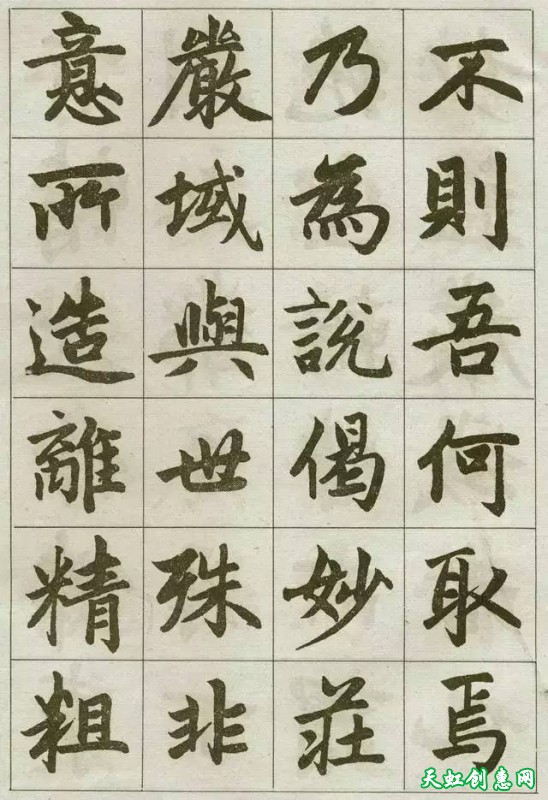 不則吾何取焉
乃為說偈妙莊
嚴域與世殊非
意所造離精粗
天虹创惠网